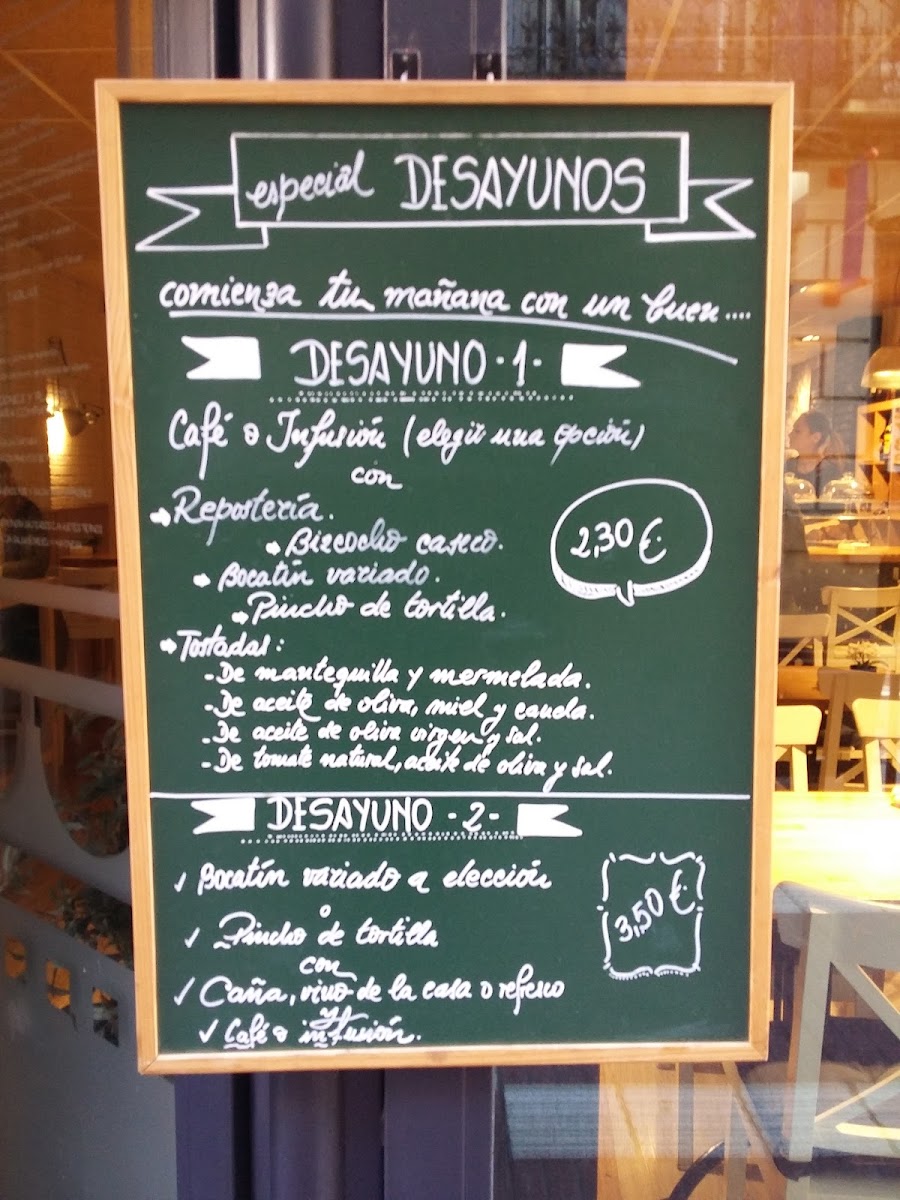 especial DESAYUNOS
comienza tu mañana con un buen....
DESAYUNO -1-
Café o Infusión (elegir una opción)
con
Repostería.
Bizcocho casero.
2,30 €.
Bocatín variado.
Pincho de tortilla.
Tostadas:
- De mantequilla y mermelada.
- De aceite de oliva, miel y canela.
- De aceite de oliva virgen y sal.
- De tomate natural, aceite de oliva y sal.
DESAYUNO -2-
✓ Bocatín variado a elección
o
✓ Pincho de tortilla
3,50 €
con
✓ Caña, vino de la casa o refresco
y
✓ Café o infusión.